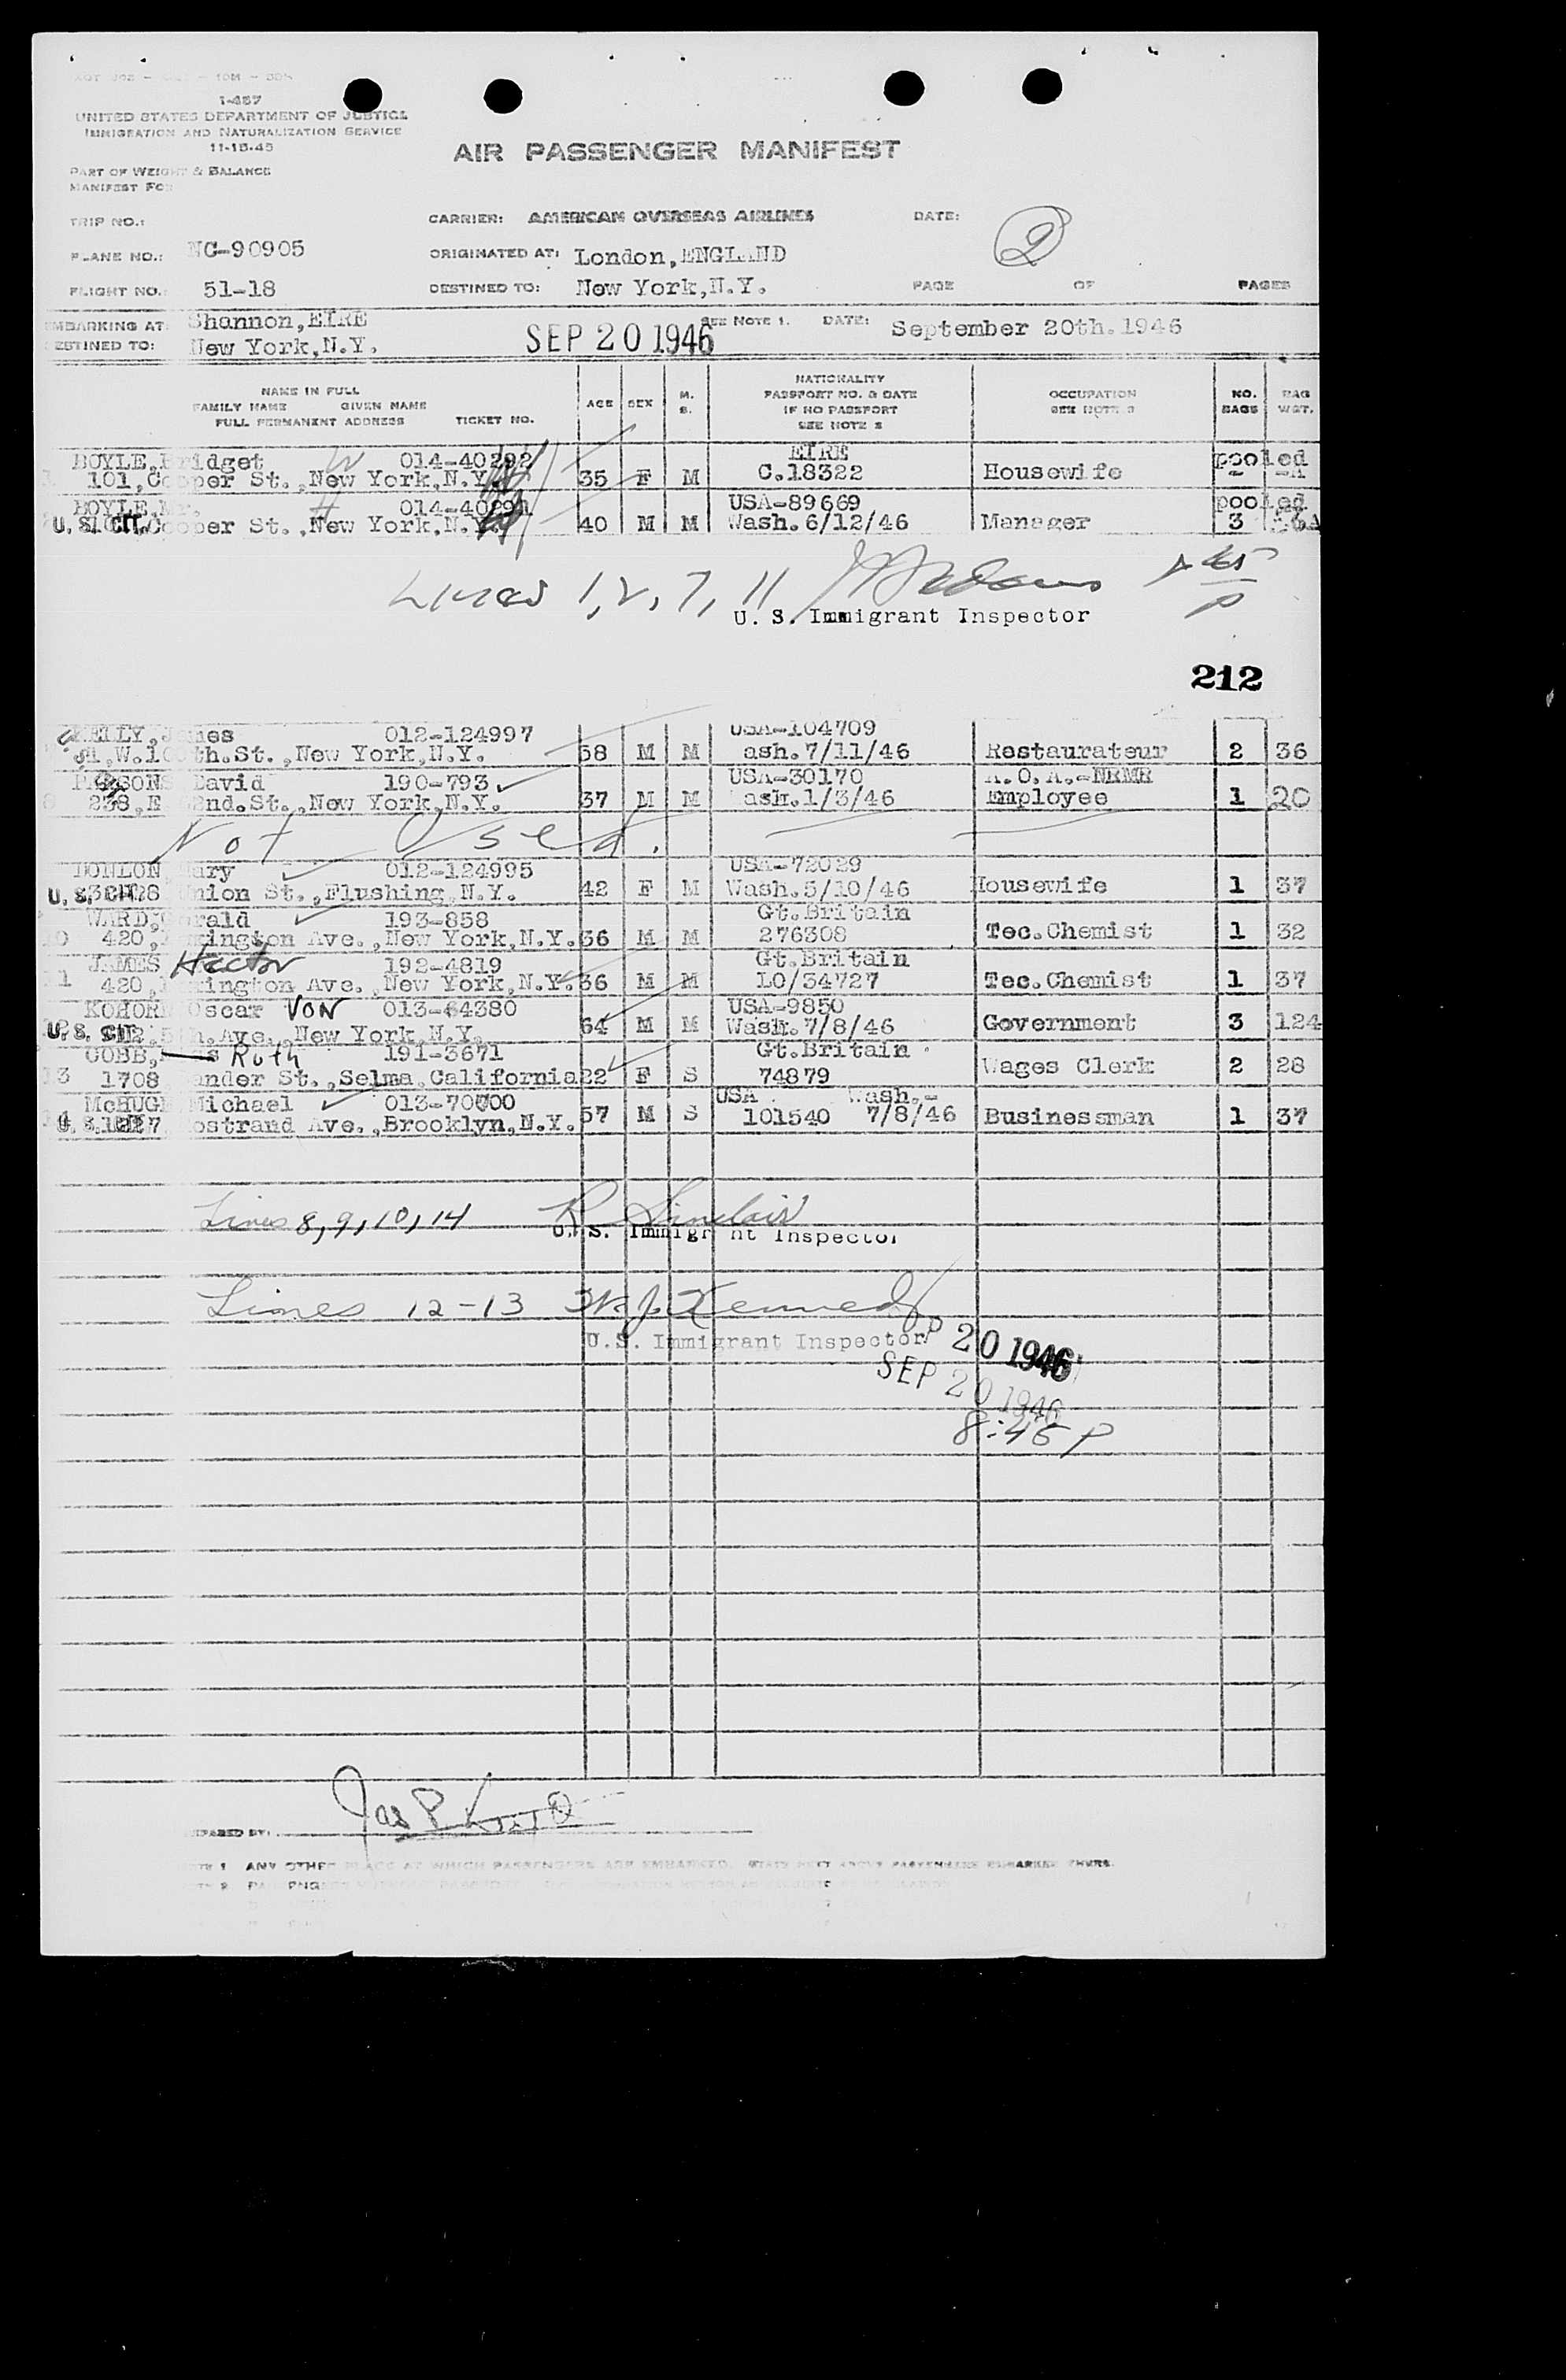 1-457
UNITED STATES DEPARTMENT OF JUSTICE
IMMIGRATION AND NATURALIZATION SERVICE
11-15-45
AIR PASSENGER MANIFEST
PART OF WEIGHT & BALANCE
MANIFEST FO
TRIP NO.: CARRIER: AMERICAN OVERSEAS AIRLINES DATE:
2
PLANE NO.: NC-90905 ORIGINATED AT: London, ENGLAND
FLIGHT NO. 51-18 DESTINED TO: New York, N.Y. PAGE OF PAGES
EMBARKING AT: Shannon, EIRE SEE NOTE 1. DATE: September 20th. 1946
DESTINED TO: New York, N.Y. SEP 20 1946
NAME IN FULL
FAMILY NAME GIVEN NAME
FULL PERMANENT ADDRESS TICKET NO. AGE SEX M. S. NATIONALITY PASSPORT NO. & DATE IF NO PASSPORT SEE NOTE 2 OCCUPATION SEE NOTE 3 NO. BAGS BAG WGT.
BOYLE, Bridget W 014-40292 EIRE pooled
101, Cooper St., New York, N.Y. 35 F M C.18322 Housewife
BOYLE, Mr. H 014-40291 USA-89669 pooled
U. S. CIT. Cooper St., New York, N.Y. 40 M M Wash. 6/12/46 Manager 3
Lines 1, 2, 7, 11
U. S. Immigrant Inspector
212
KELLY, James 012-124997 USA-104709
W. th. St., New York, N.Y. 58 M M ash. 7/11/46 Restaurateur 2 36
David 190-793 USA-30170 A.O.A.-
238, E 2nd. St., New York, N.Y. 37 M M ash. 1/3/46 Employee 1 20
Not Used.
DONLON, Mary 012-124995 USA-72029
U. S. CIT. Union St., Flushing, N.Y. 42 F M Wash. 5/10/46 Housewife 1 37
WARD, Gerald 193-858 Gt. Britain
10 420, Lexington Ave., New York, N.Y. 36 M M 276308 Tec. Chemist 1 32
JAMES Hector 192-4819 Gt. Britain
11 420, Lexington Ave., New York, N.Y. 36 M M LO/34727 Tec. Chemist 1 37
KOHORN Oscar VON 013-64380 USA-9850
U. S. CIT. 5th. Ave., New York, N.Y. 64 M M Wash. 7/8/46 Government 3 124
COBB, s Ruth 191-3671 Gt. Britain
13 1708 ander St., Selma, California 22 F S 74879 Wages Clerk 2 28
McHUGH Michael 013-70000 USA Wash.-
U. S. CIT. ostrand Ave., Brooklyn, N.Y. 57 M S 101540 7/8/46 Businessman 1 37
Lines 8, 9, 10, 14 R Sinclair
U. S. Immigrant Inspector
Lines 12-13 W. J. Kennedy
U.S. Immigrant Inspector
P 20 1946
SEP 20 1946
8:45 P
PREPARED BY:
NOTE 1 ANY OTHER PLACE AT WHICH PASSENGERS ARE EMBARKED.